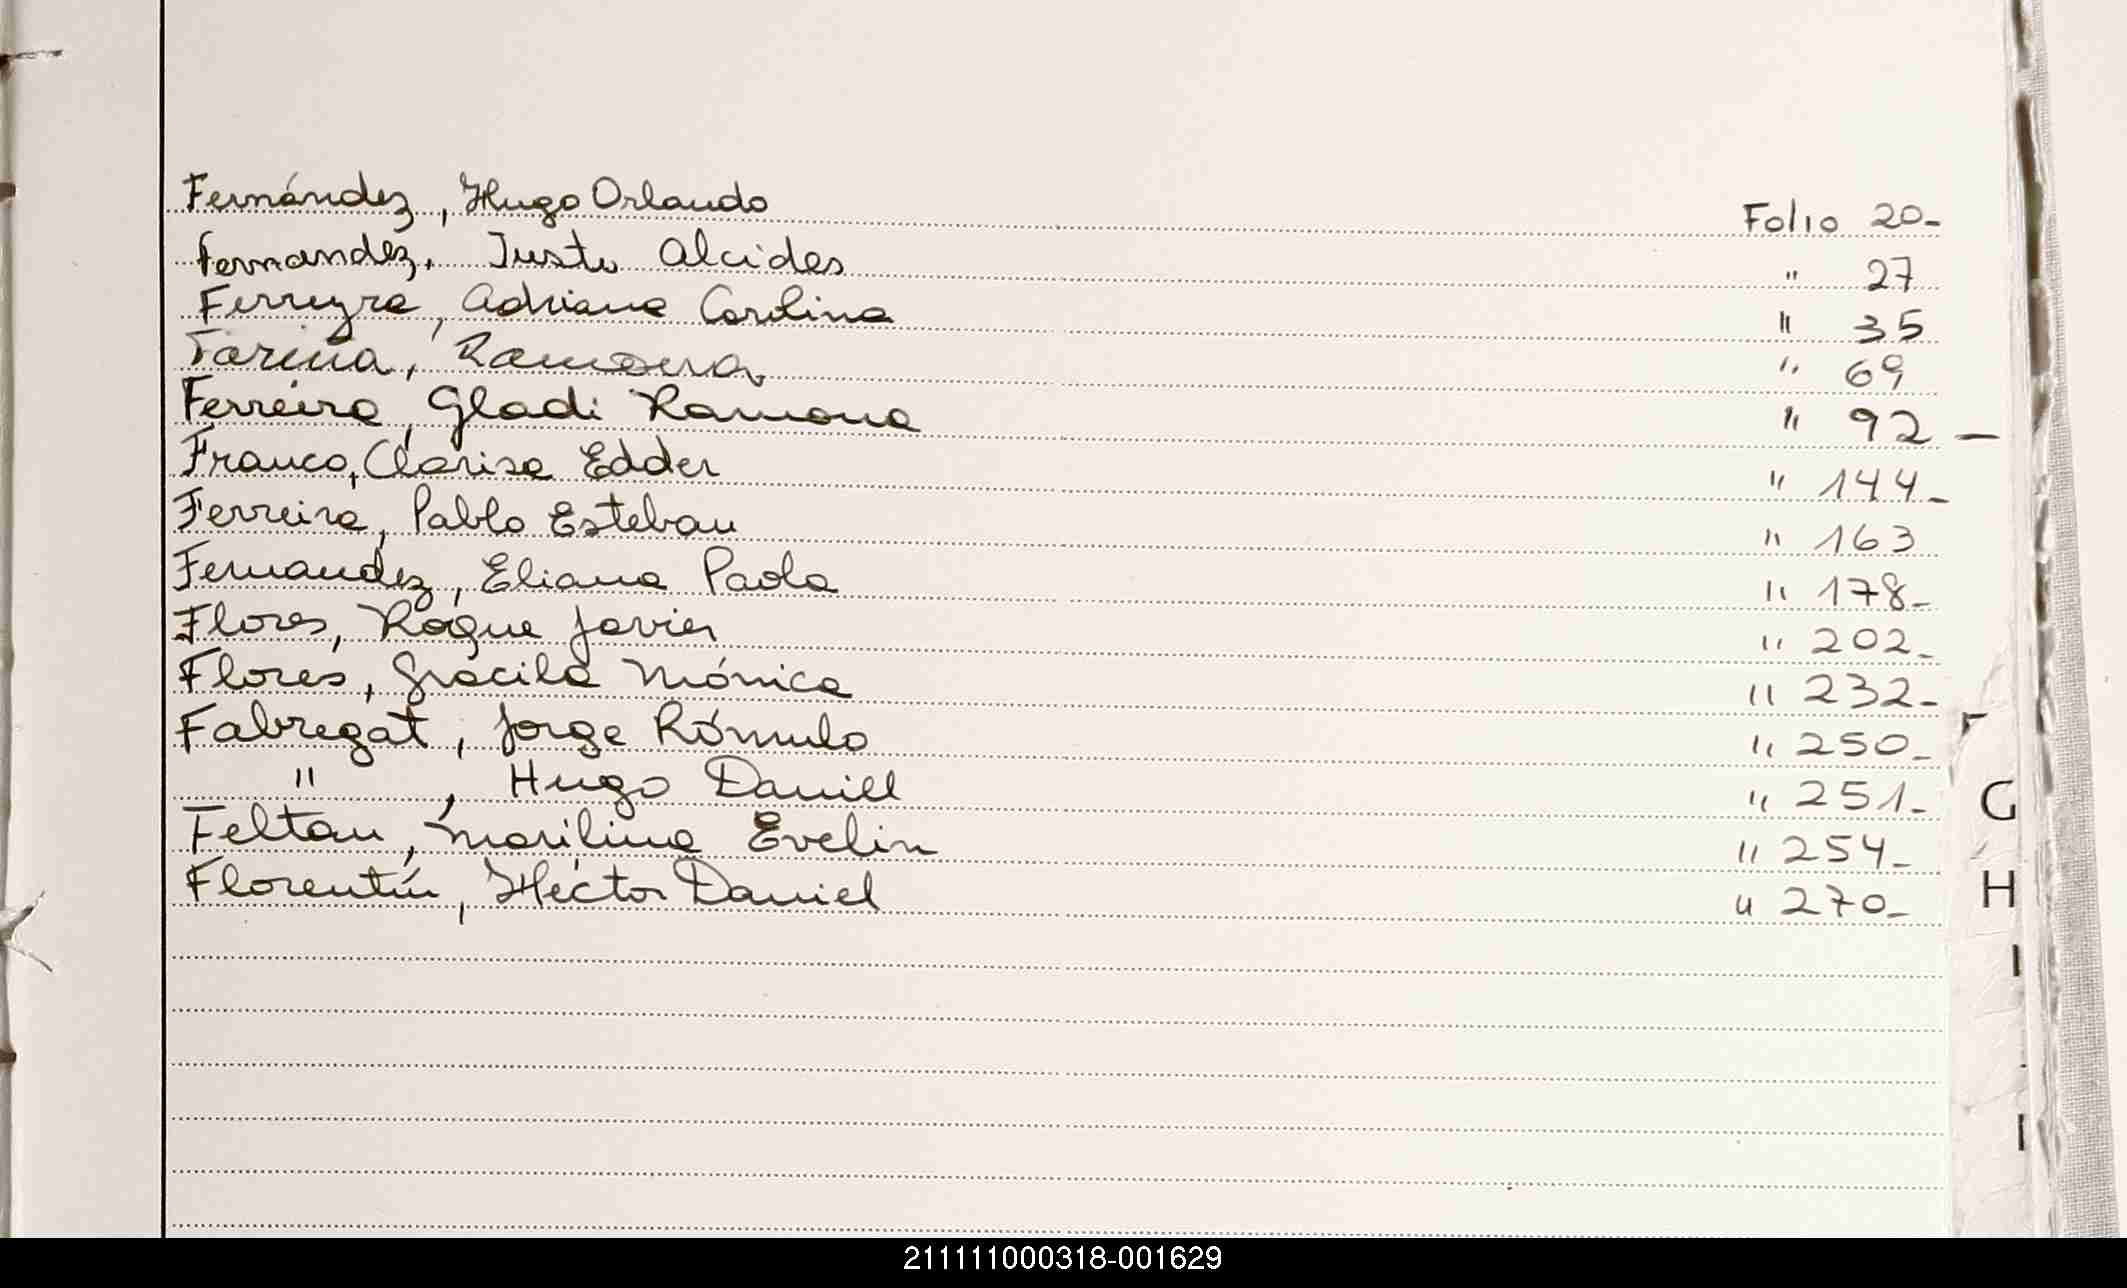 Fernández, Hugo Orlando Folio 20-
Fernandez, Justo Alcides " 27
Ferreyra, Adriana Carolina " 35
Fariña, Ramona " 69
Ferreira, Gladi Ramona " 92 -
Franco, Clarisa Edder " 144-
Ferreira, Pablo Esteban " 163
Fernandez, Eliana Paola " 178-
Flores, Roque Javier " 202-
Flores, Gracila Mónica " 232-
Fabregat, Jorge Rómulo " 250-
" , Hugo Daniel " 251-
Feltan, Marilina Evelin " 254-
Florentín, Héctor Daniel " 270-
G
H
I
211111000318-001629